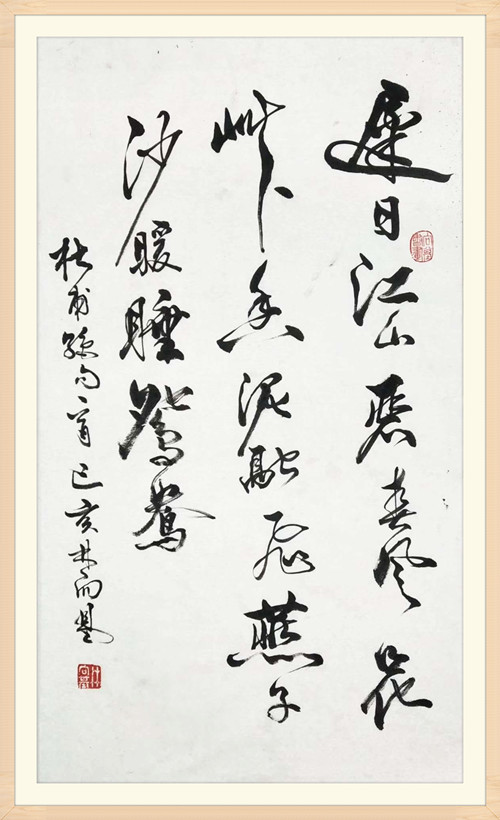 遲日江山麗春風花
草香泥融飛燕子
沙暖睡鴛鴦
杜甫絕句一首己亥林向